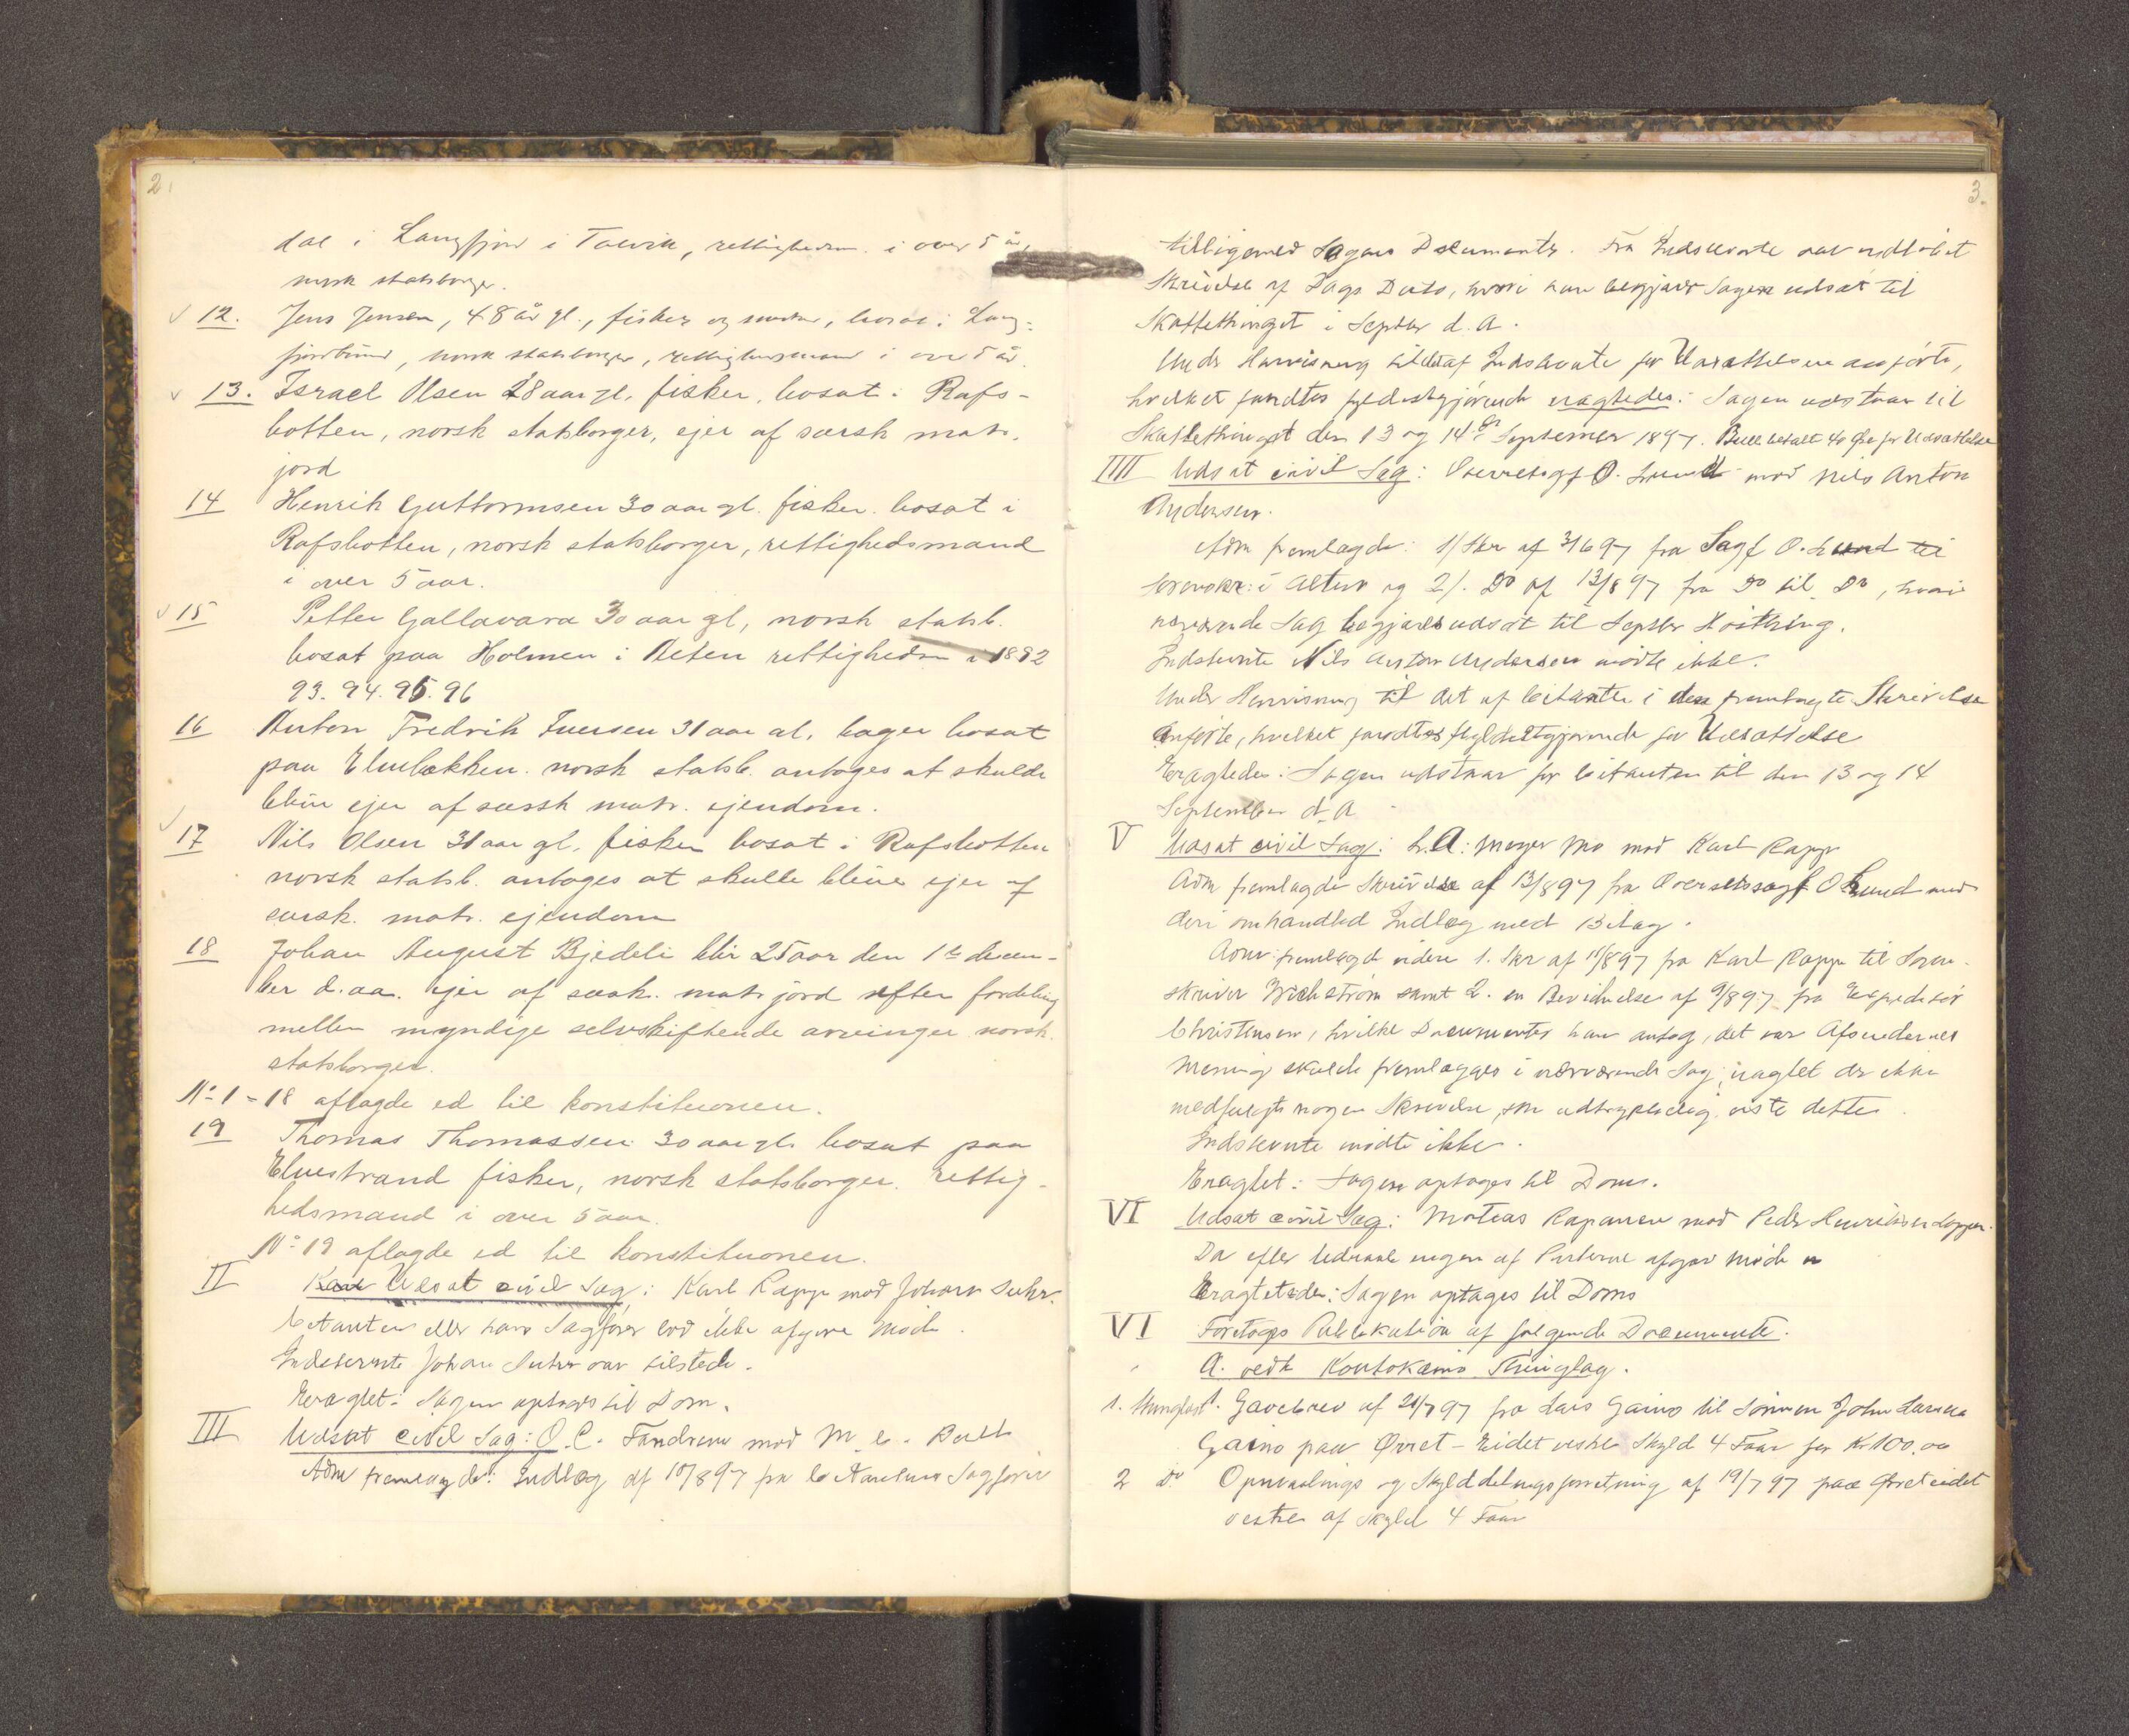 2.
dal i Langfjord i Talvik, rettighedsm. i over 5 år,
norsk statsborger.
12. Jens Jensen, 48 år gl., fisker og , bosat i Lang-
fjordbund, norsk statsborger, rettighedsmand i over 5 år.
13. Israel Olsen 28 aar gl. fisker, bosat i Rafs-
botten, norsk statsborger, ejer af særsk. matr.
jord
14 Henrik Guttormsen 30 aar gl. fisker. bosat i
Rafsbotten, norsk statsborger, rettighedsmand
i over 5 aar.
15 Petter Gallavara 30 aar gl, norsk statsb.
bosat paa Holmen i rettighedsm i 1892
93. 94. 95. 96
16 Anton Fredrik Iversen 31 aar gl. bager bosat
paa Elvebakken. norsk statsb. antages at skulde
blive ejer af særsk matr. ejendom.
17 Nils Olsen 31 aar gl. fisker bosat i Rafsbotten
norsk statsb. antages at skulle blive ejer af
særsk. matr. ejendom
18 Johan August Bjedeli blir 25 aar den 1ste decem-
ber d. aa. ejer af særsk. matr jord efter fordeling
mellem myndige selvskiftende arvinger norsk
statsborger.
No 1 - 18 aflagde ed til konstitutionen.
19 Thomas Thomassen 30 aar gl. bosat paa
Elvestrand fisker, norsk statsborger. rettig-
hedsmand i over 5 aar.
No 19 aflagde ed til konstitutionen.
II Karl Udsat civil Sag: Karl Rapp mod Johan Suhr.
Citanten eller hans Sagfører lod ikke afgive Møde.
Indstevnte Johan Suhr var tilstede.
Eragtet: Sagen optages til Dom.
III Udsat civil Sag: O. C. Fandrem mod M. C. Bull
Adm fremlagde: Indlæg af 10/8 97 fra Citantens Sagfører
3.
tilligemed Sagens Documenter. Fra Indstevnte var indløbet
Skrivelse af Dags Dato, hvori han begjærer Sagen udsat til
Skattethinget i Septbr d. A.
Under Henvisning til det af Indstevnte for Udsættelsen anførte,
hvilket fandtes fyldestgjørende eragtedes: Sagen udstaar til
Skattethinget den 13 og 14de September 1897. Bull betalt 40 Øre for Udsættelse
IIII Udsat civil Sag: Overretssagf O. Lund mod Nils Anton
Andersen.
Adm fremlagde: 1/ Skr af 3/6 97 fra Sagf O. Lund til
Sorenskr: i Alten og 2/. Do af 13/8 97 fra Do til Do, hvori
nærværende Sag begjæres udsat til Septbr Høstthing.
Indstevnte Nils Anton Andersen mødte ikke.
Under Henvisning til det af Citanten i den fremlagte Skrivelse
Anførte, hvilket fandtes fyldestgjørende for Udsættelse
Eragtedes: Sagen udstaar for Citanten til den 13 og 14
September d. A
V Udsat civil Sag: L. A: Meyer Mo mod Karl Rapp
Adm fremlagde Skrivelse af 13/8 97 fra Overretssagf O Lund med
deri omhandled Indlæg med Bilag.
Adm: fremlagde videre 1. Skr af 11/8 97 fra Karl Rapp til Soren-
skriver Wickstrøm samt 2. en Bevidnelse af 9/8 97 fra Expeditør
Christensen, hvilke Documenter han antog, det var Afsendernes
Mening skulde fremlægges i nærværende Sag, uagtet der ikke
medfulgte nogen Skrivelse, som udtrykkelig viste dette.
Indstevnte mødte ikke.
Eragtet: Sagen optages til Doms.
VI Udsat civil Sag: Matias Rapanen mod Peder Henriksen Loppen.
Da efter ingen af Parterne afgav Møde
Eragtetedes: Sagen optages til Doms
VI Foretoges Publikation af følgende Documenter.
A. vedk Koutokæino Thinglag.
1. Thinglæst. Gavebrev af 21/7 97 fra Lars Gaino til Sønnen John Larsen
Gaino paa Øvret-Eidet vestre Skyld 4 Faar for Kr 100,00
2 do Opmaalings og Skylddelingsforretning af 19/7 97 paa Øvreteidet
vestre af Skyld 4 Faar